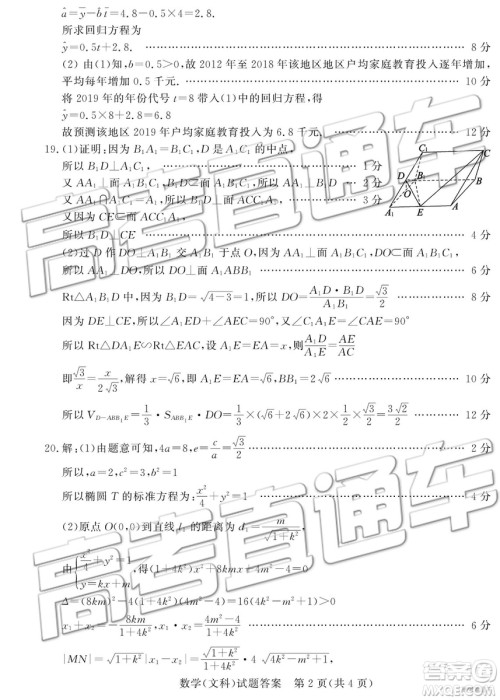 â=ȳ-b̂t̄=4.8-0.5×4=2.8.
所求回归方程为
ŷ=0.5t+2.8. 8分
(2) 由(1)知, b=0.5>0, 故 2012 年至 2018 年该地区地区户均家庭教育投入逐年增加,
平均每年增加 0.5 千元.
将 2019 年的年份代号 t=8 带入(1)中的回归方程, 得
ŷ=0.5×8+2.8=6.8
故预测该地区 2019 年户均家庭教育投入为 6.8 千元. 12分
19.(1)证明: 因为 B₁A₁=B₁C₁, D 是 A₁C₁ 的中点,
所以 B₁D⊥A₁C₁, 1分
又 AA₁⊥面 A₁B₁C₁, B₁D⊂面 A₁B₁C₁, 所以 AA₁⊥B₁D 2分
又 AA₁∩A₁C₁=A₁, 所以 B₁D⊥面 ACC₁A₁, 3分
又因为 CE⊂面 ACC₁A₁,
所以 B₁D⊥CE 4分
(2)过 D 作 DO⊥A₁B₁ 交 A₁B₁ 于点 O, 因为 AA₁⊥面 A₁B₁C₁, DO⊂面 A₁B₁C₁,
所以 AA₁⊥DO, 所以 DO⊥面 A₁ABB₁ 6分
Rt△A₁B₁D 中, 因为 B₁D=√(4-3)=1, 所以 DO=A₁D·B₁D/A₁B₁=√3/2 8分
因为 DE⊥CE, 所以∠A₁ED+∠AEC=90°, 又∠ACE+∠AEC=90°
所以 Rt△DA₁E∽Rt△EAC, 设 A₁E=EA=x, 则 A₁D/A₁E=AE/AC
即 √3/x=x/2√3, 解得 x=√6, 即 A₁E=EA=√6, BB₁=2√6 10分
所以 V_{D-ABB₁E}=1/3·S_{ABB₁E}·DO=1/3×1/2×(√6+2√6)×2×√3/2=3√2/2 12分
20.解:(1)由题意可知, 4a=8, e=c/a=√3/2 2分
所以, a=2, c²=3, b²=1
所以椭圆 T 的标准方程为: x²/4+y²=1 4分
(2)原点 O(0,0)到直线 l₁ 的距离为 d₁=m/√(1+k²)
由{x²/4+y²=1, y=kx+m, 得(1+4k²)x²+8kmx+4m²-4=0
Δ=(8km)²-4(1+4k²)(4m²-4)=16(4k²-m²+1)>0
x₁+x₂=-8km/(1+4k²), x₁x₂=(4m²-4)/(1+4k²) 6分
|MN|=√(1+k²)|x₁-x₂|=√(1+k²)·4√(4k²-m²+1)/(1+4k²)
数学(文科)试题答案 第2页(共4页)
高考直通车
高考直通车
A₁
E
A
B
C
D